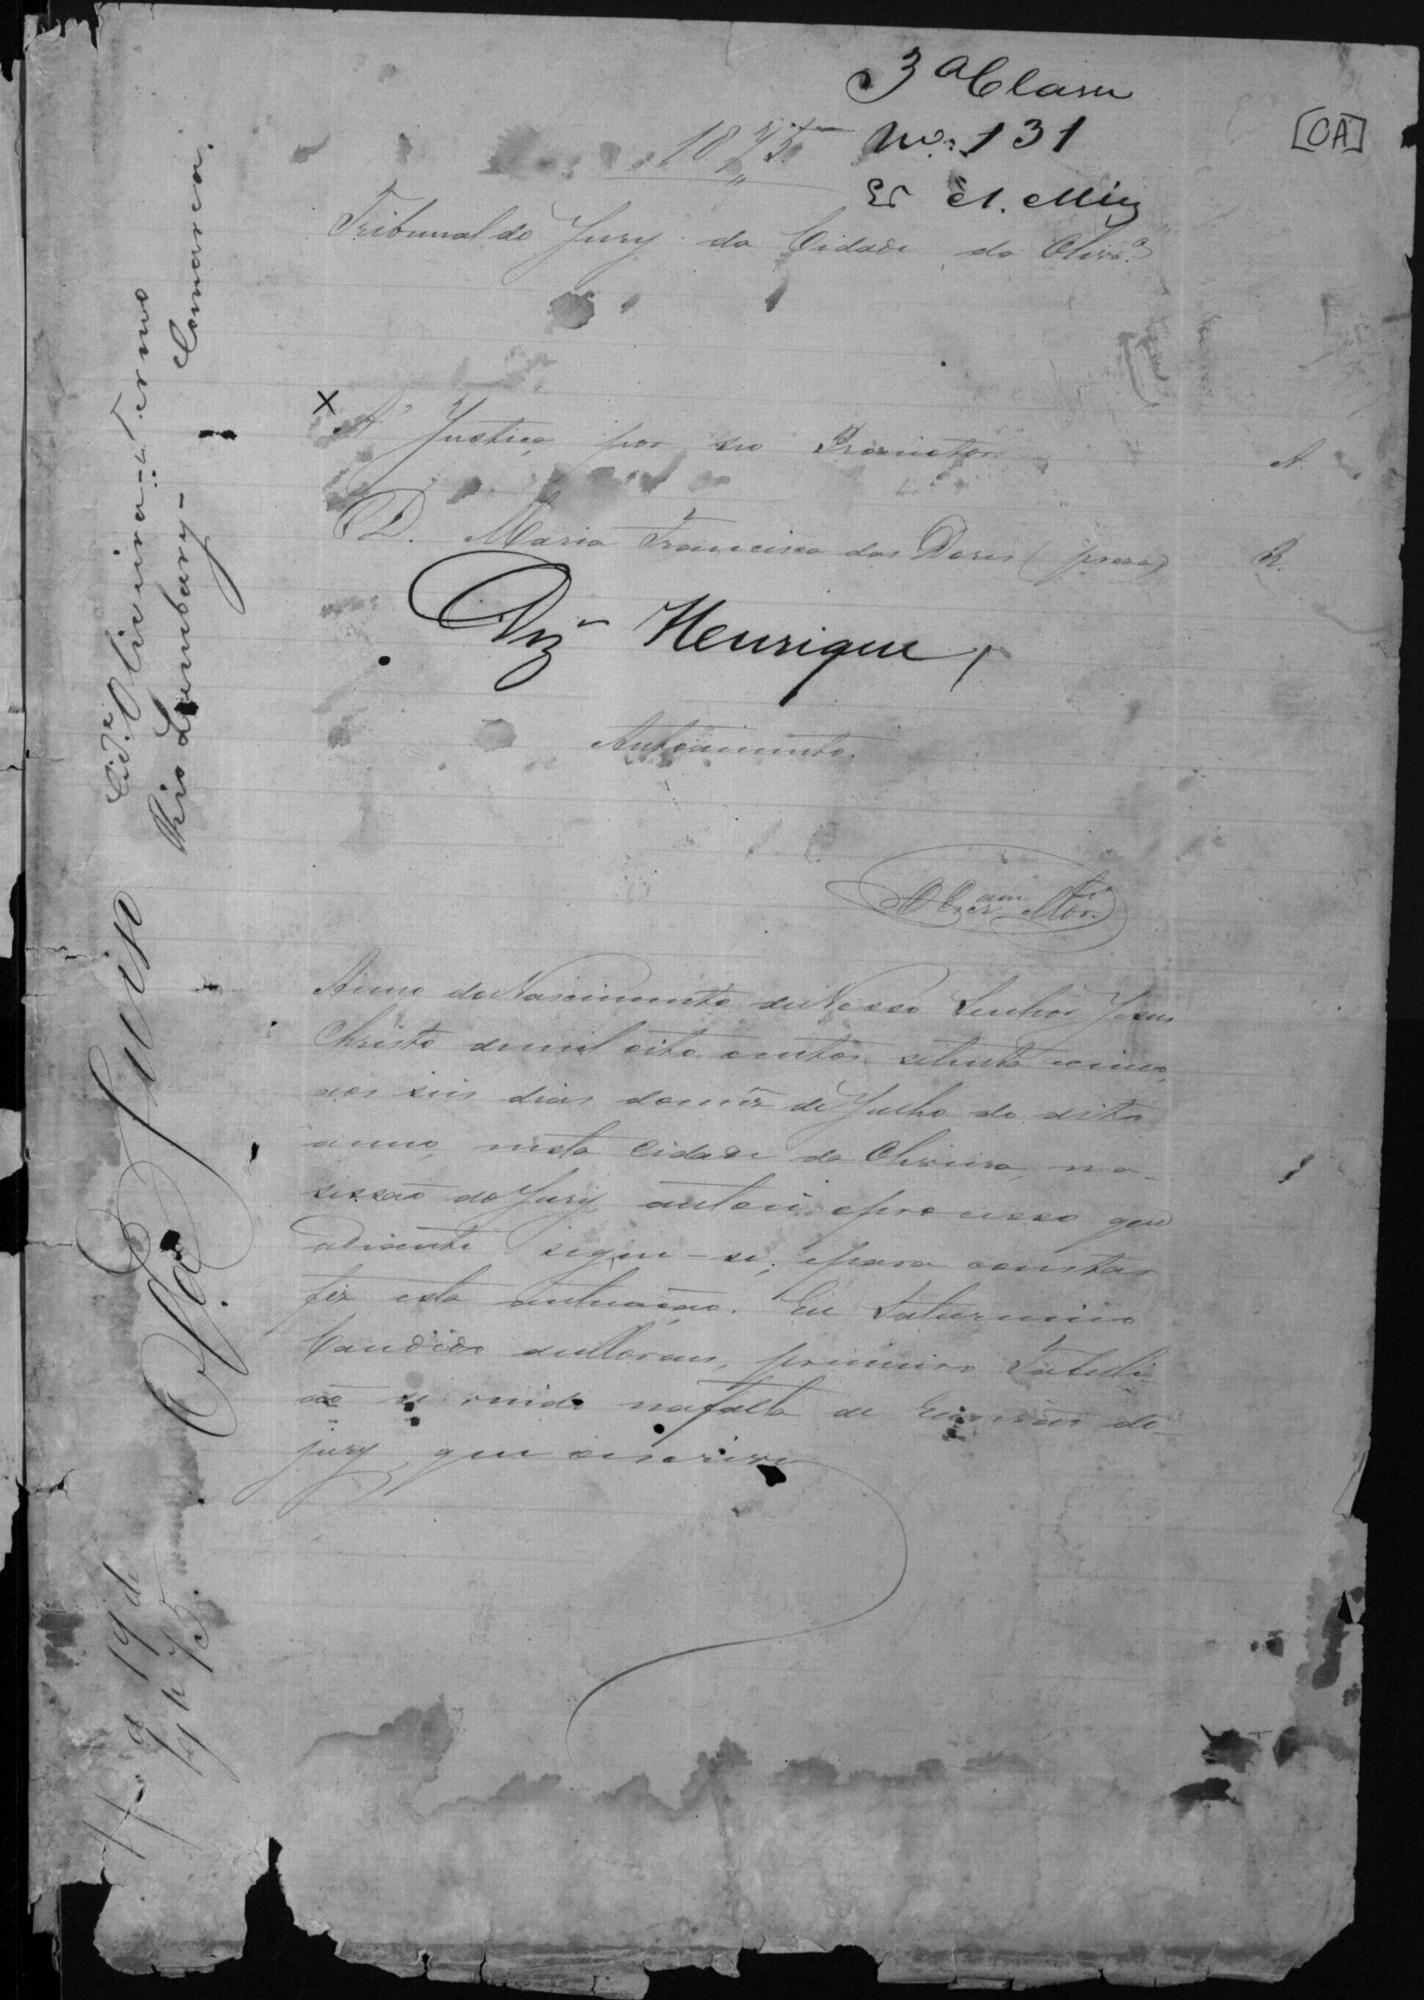 3ª Classe
Nº 131
[OA]
1875
Er M. Miz
Tribunal do Jury da Cidade da Olivrª
X
A' Justiça por seu Promotor A.
D. Maria Francisca das Dores (preza) R.
Dizr Henrique
Autoamento.
O Escram Mor.
Anno do Nascimento de Nosso Senhor Jesus
Christo de mil oito centos setenta e cinco,
aos seis dias do mez de Julho do dito
anno, nesta Cidade da Oliveira, na
sessão do Jury autoei o processo que
adiante segue-se; e para constar
fiz esta autuação. Eu Saturnino
Candido de Moraes, primeiro Tabelli-
ão servindo na falta de Escrivão do
jury, que escrevi
Cid.e Oliveira - Termo
Rio Lambary - Comarca.
Juiso
a 19 de
75